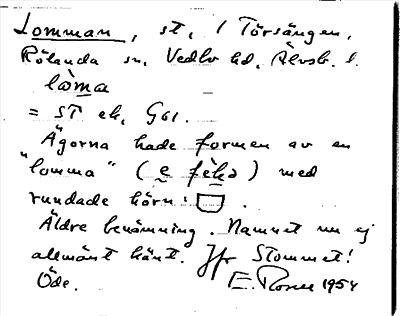 Lomman, st, 1 Törsängen,
Rölanda sn, Vedbo hd, Älvsb. l.
låma
= ST ek, G61.
Ägorna hade formen av en
"lomma" (e fèka) med
rundade hörn: .
Äldre benämning. Namnet nu ej
allmänt känt. Jfr Stommet!
Öde. E. Rosell 1954